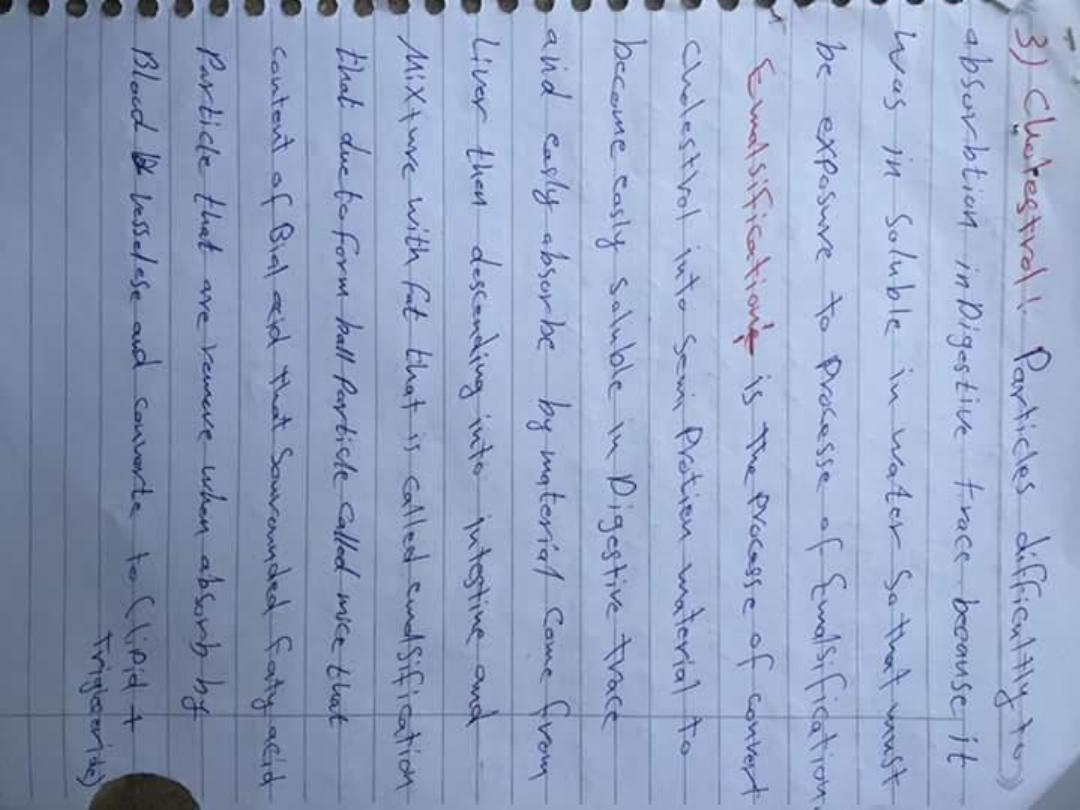 3) Cholestrol:- Particles difficultly to
absorbtion in Digestive trace because it
was in soluble in water so that must
be exposure to Processe of Emulsification
Emulsification is the Processe of convert
cholestrol into semi Protien material to
become easly soluble in Digestive trace
and easly absorbe by material come from
Liver then descending into intestine and
Mixture with fat that is called emulsification
that due to form ball Particle called mice that
content of Bial acid that Sourounded faty acid
Particle that are remove when absorb by
Blood and converte to (lipid +
Trigleceride)